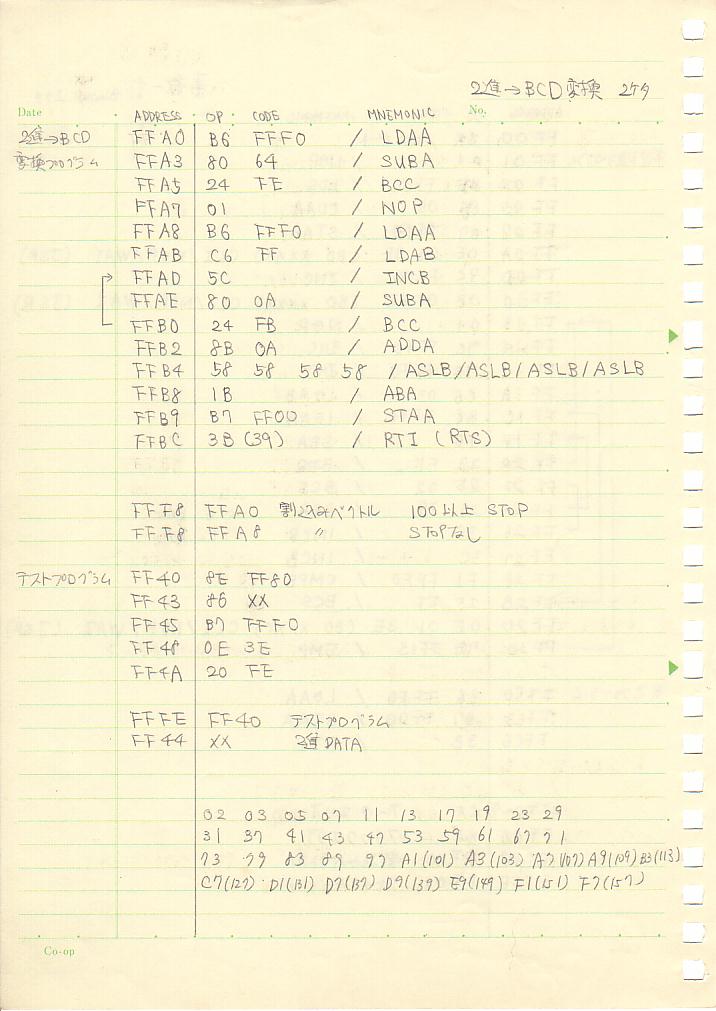 2進→BCD変換 2ケタ
Date No.
ADDRESS OP CODE MNEMONIC
2進→BCD FFA0 B6 FFF0 / LDAA
変換プログラム FFA3 80 64 / SUBA
FFA5 24 FE / BCC
FFA7 01 / NOP
FFA8 B6 FFF0 / LDAA
FFAB C6 FF / LDAB
FFAD 5C / INCB
FFAE 80 0A / SUBA
FFB0 24 FB / BCC
FFB2 8B 0A / ADDA
FFB4 58 58 58 58 / ASLB/ASLB/ASLB/ASLB
FFB8 1B / ABA
FFB9 B7 FF00 / STAA
FFBC 3B (39) / RTI (RTS)
FFF8 FFA0 割込みベクトル 100以上 STOP
FFF8 FFA8 〃 STOPなし
テストプログラム FF40 8E FF80
FF43 86 XX
FF45 B7 FFF0
FF48 0E 3E
FF4A 20 FE
FFFE FF40 テストプログラム
FF44 XX 2進DATA
02 03 05 07 11 13 17 19 23 29
31 37 41 43 47 53 59 61 67 71
73 79 83 89 97 A1(101) A3(103) A7(107) A9(109) B3(113)
C7(127) D1(131) D7(137) D9(139) E9(149) F1(151) F7(157)
Co-op